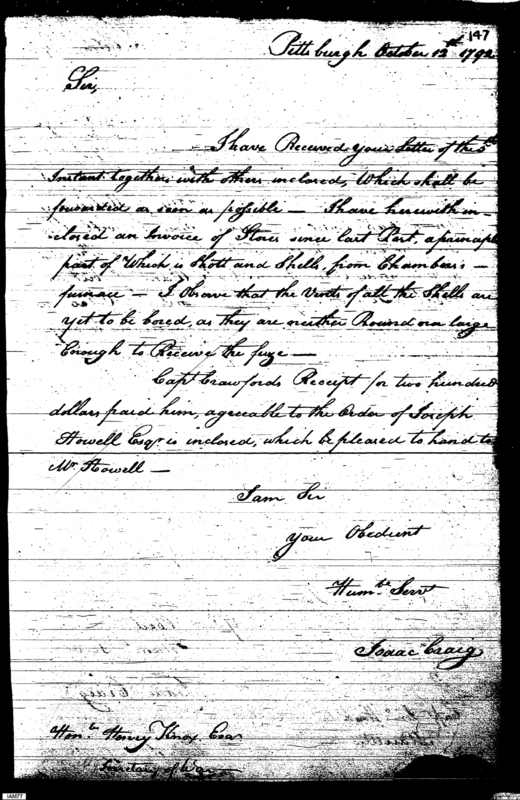 147
Pittsburgh October 12th 1792
Sir,
I have Received your Letter of the 5th
Instant together with others inclosed, Which shall be
forwarded as soon as possible — I have herewith in-
-closed an Invoice of Stores since last Post, a principal
part of Which is Shott and Shells, from Chambers's -
furnace — I observe that the Vents of all the Shells are
yet to be bored, as they are neither Round nor large
Enough to Receive the fuze —
Capt Crawfords Receipt for two hundred
dollars paid him, agreeable to the Order of Joseph
Howell Esqr is inclosed, which be pleased to hand to
Mr. Howell —
I am Sir
your Obedient
Humble Servt
Isaac Craig
Honble Henry Knox Esqr
Secretary of War
IAM77